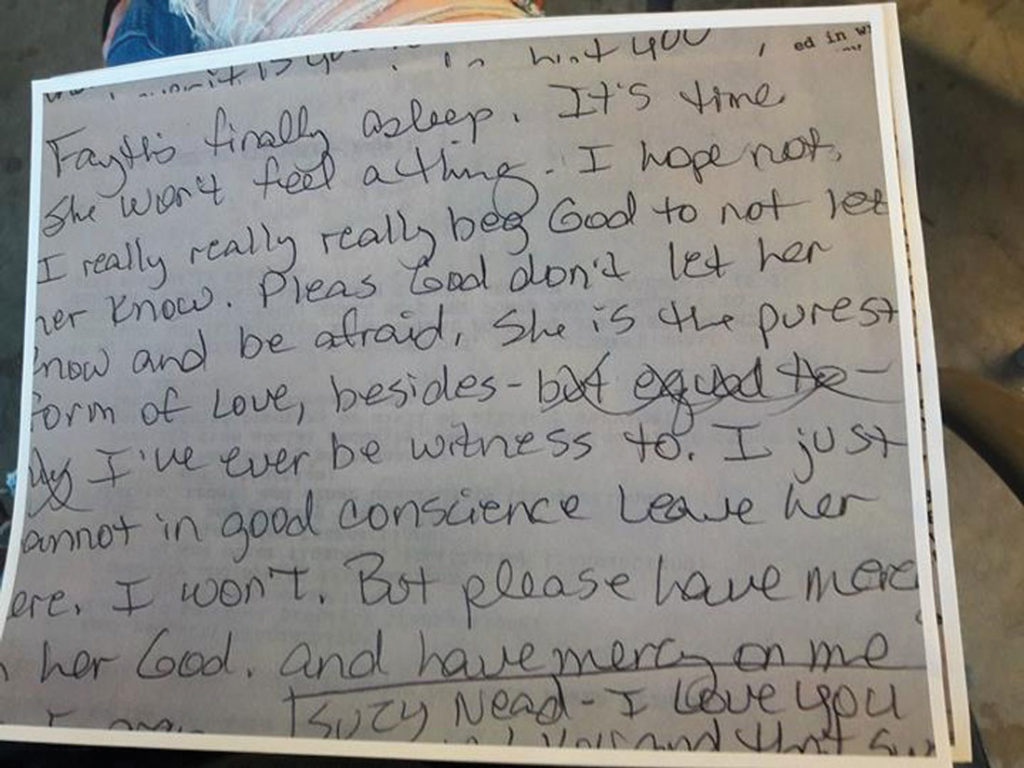 it is you. hint you , ed in w
Fayth's finally asleep. It's time
She won't feel a thing. I hope not.
I really really really beg God to not let
her know. Pleas God don't let her
know and be afraid. She is the purest
form of Love, besides - but equal to -
I've ever be witness to. I just
annot in good conscience Leave her
ere. I won't. But please have merc
her God. and have mercy on me
Suzy Nead - I Love you
and that